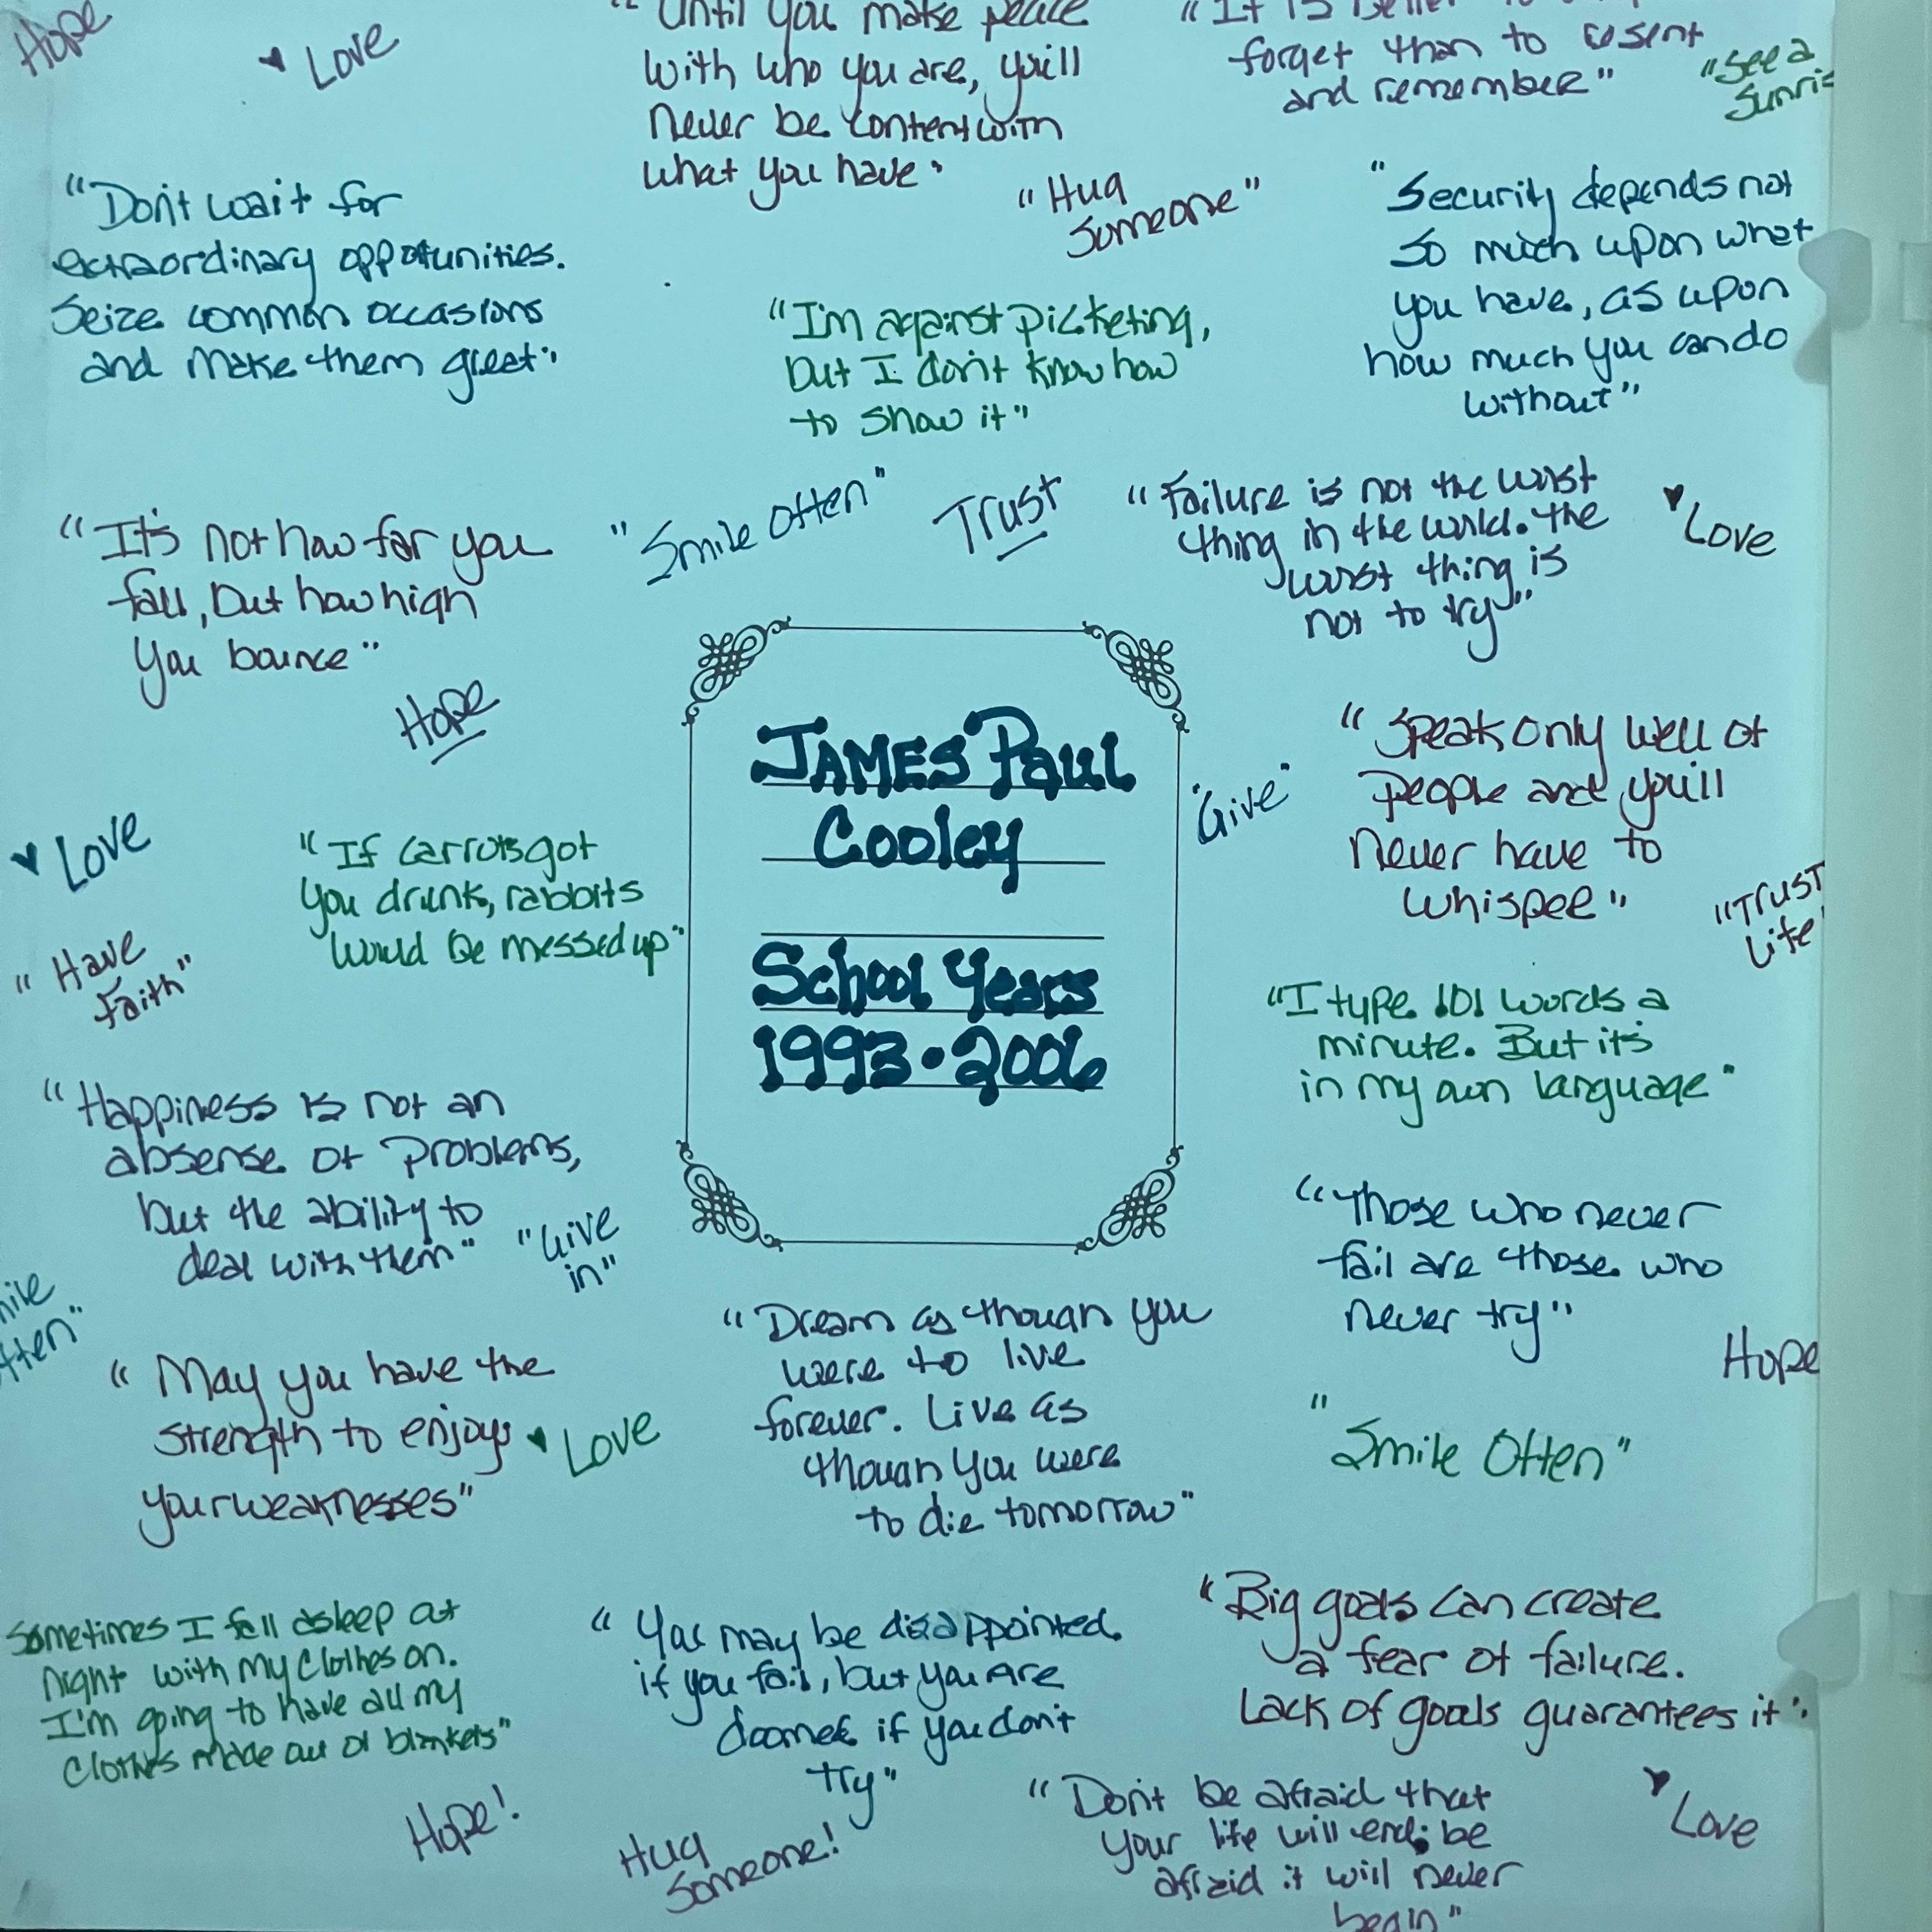 Hope
Love
"Until you make peace
with who you are, you'll
never be content with
what you have"
forget than to resent
and remember"
"See a
"Don't wait for
extraordinary oppotunities.
Seize common occasions
and make them great"
"Hug
Someone"
"Security depends not
so much upon what
you have, as upon
how much you can do
without"
"I'm against picketing,
but I don't know how
to show it"
"It's not how far you
fall, but how high
you bounce"
"Smile Often"
Trust
"Failure is not the worst
thing in the world. the
worst thing is
not to try"
Love
Hope
JAMES Paul
Cooley
School Years
1993•2006
"Give"
"Speak only well of
people and you'll
never have to
whisper"
Love
"If carrots got
you drunk, rabbits
would be messed up"
"Trust
Life"
"Have
faith"
"I type 101 words a
minute. But it's
in my own language"
"Happiness is not an
absense of problems,
but the ability to
deal with them"
"Give
in"
"Those who never
fail are those who
never try"
Hope
"May you have the
strength to enjoy
your weaknesses"
Love
"Dream as though you
were to live
forever. Live as
though you were
to die tomorrow"
"
"Smile Often"
Sometimes I fall asleep at
night with my clothes on.
I'm going to have all my
clothes made out of blankets"
"You may be disappointed
if you fail, but you are
doomed if you don't
try"
"Big goals can create
a fear of failure.
Lack of goals guarantees it".
Hope!
Hug
Someone!
"Don't be afraid that
your life will end; be
afraid it will never
begin"
Love